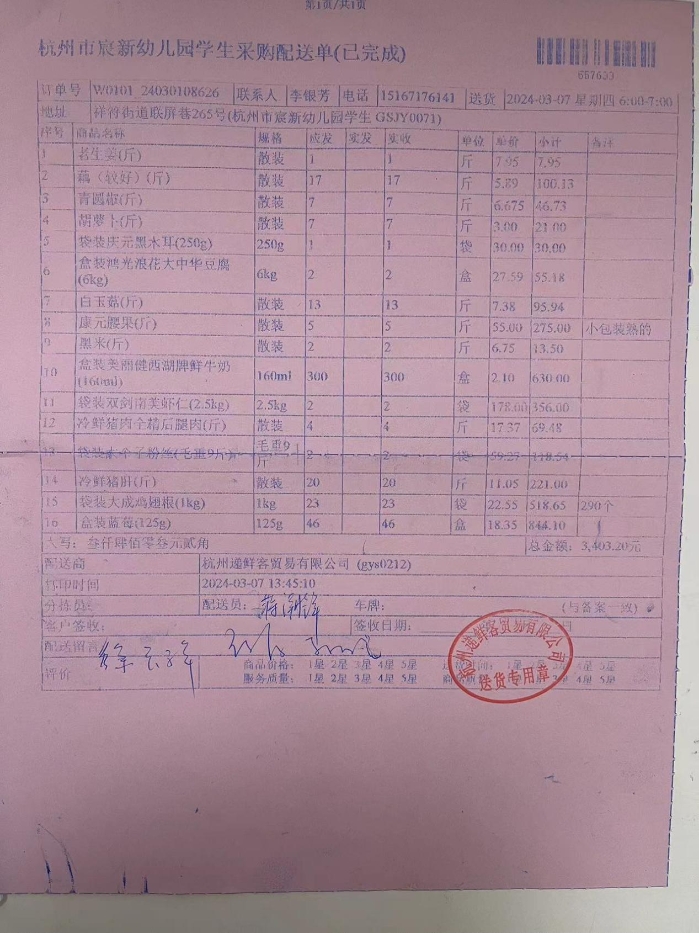 第1页/共1页
杭州市宸新幼儿园学生采购配送单(已完成)
657633
订单号 W0101_24030108626 联系人 李银芳 电话 15167176141 送货 2024-03-07 星期四 6:00-7:00
地址 祥符街道联屏巷265号(杭州市宸新幼儿园学生 GSJY0071)
序号 商品名称 规格 应发 实发 实收 单位 单价 小计 备注
1 老生姜(斤) 散装 1 1 斤 7.95 7.95
2 藕（较好）(斤) 散装 17 17 斤 5.89 100.13
3 青圆椒(斤) 散装 7 7 斤 6.675 46.73
4 胡萝卜(斤) 散装 7 7 斤 3.00 21.00
5 袋装庆元黑木耳(250g) 250g 1 1 袋 30.00 30.00
6 盒装鸿光浪花大中华豆腐(6kg) 6kg 2 2 盒 27.59 55.18
7 白玉菇(斤) 散装 13 13 斤 7.38 95.94
8 康元腰果(斤) 散装 5 5 斤 55.00 275.00 小包装熟的
9 黑米(斤) 散装 2 2 斤 6.75 13.50
10 盒装美丽健西湖牌鲜牛奶(160ml) 160ml 300 300 盒 2.10 630.00
11 袋装双剑南美虾仁(2.5kg) 2.5kg 2 2 袋 178.00 356.00
12 冷鲜猪肉全精后腿肉(斤) 散装 4 4 斤 17.37 69.48
13 粉丝(毛重9斤) 毛重9斤 2 2 袋 59.27 118.54
14 冷鲜猪肝(斤) 散装 20 20 斤 11.05 221.00
15 袋装大成鸡翅根(1kg) 1kg 23 23 袋 22.55 518.65 290个
16 盒装蓝莓(125g) 125g 46 46 盒 18.35 844.10
大写：叁仟肆佰零叁元贰角 总金额：3,403.20元
配送商 杭州递鲜客贸易有限公司 (gys0212)
打印时间 2024-03-07 13:45:10
分拣员: 配送员: 车牌: (与备案一致)
客户签收: 签收日期:
配送留言
评价 商品价格： 1星 2星 3星 4星 5星 4星 5星
服务质量： 1星 2星 3星 4星 5星 3星 4星 5星
杭州递鲜客贸易有限公司
送货专用章